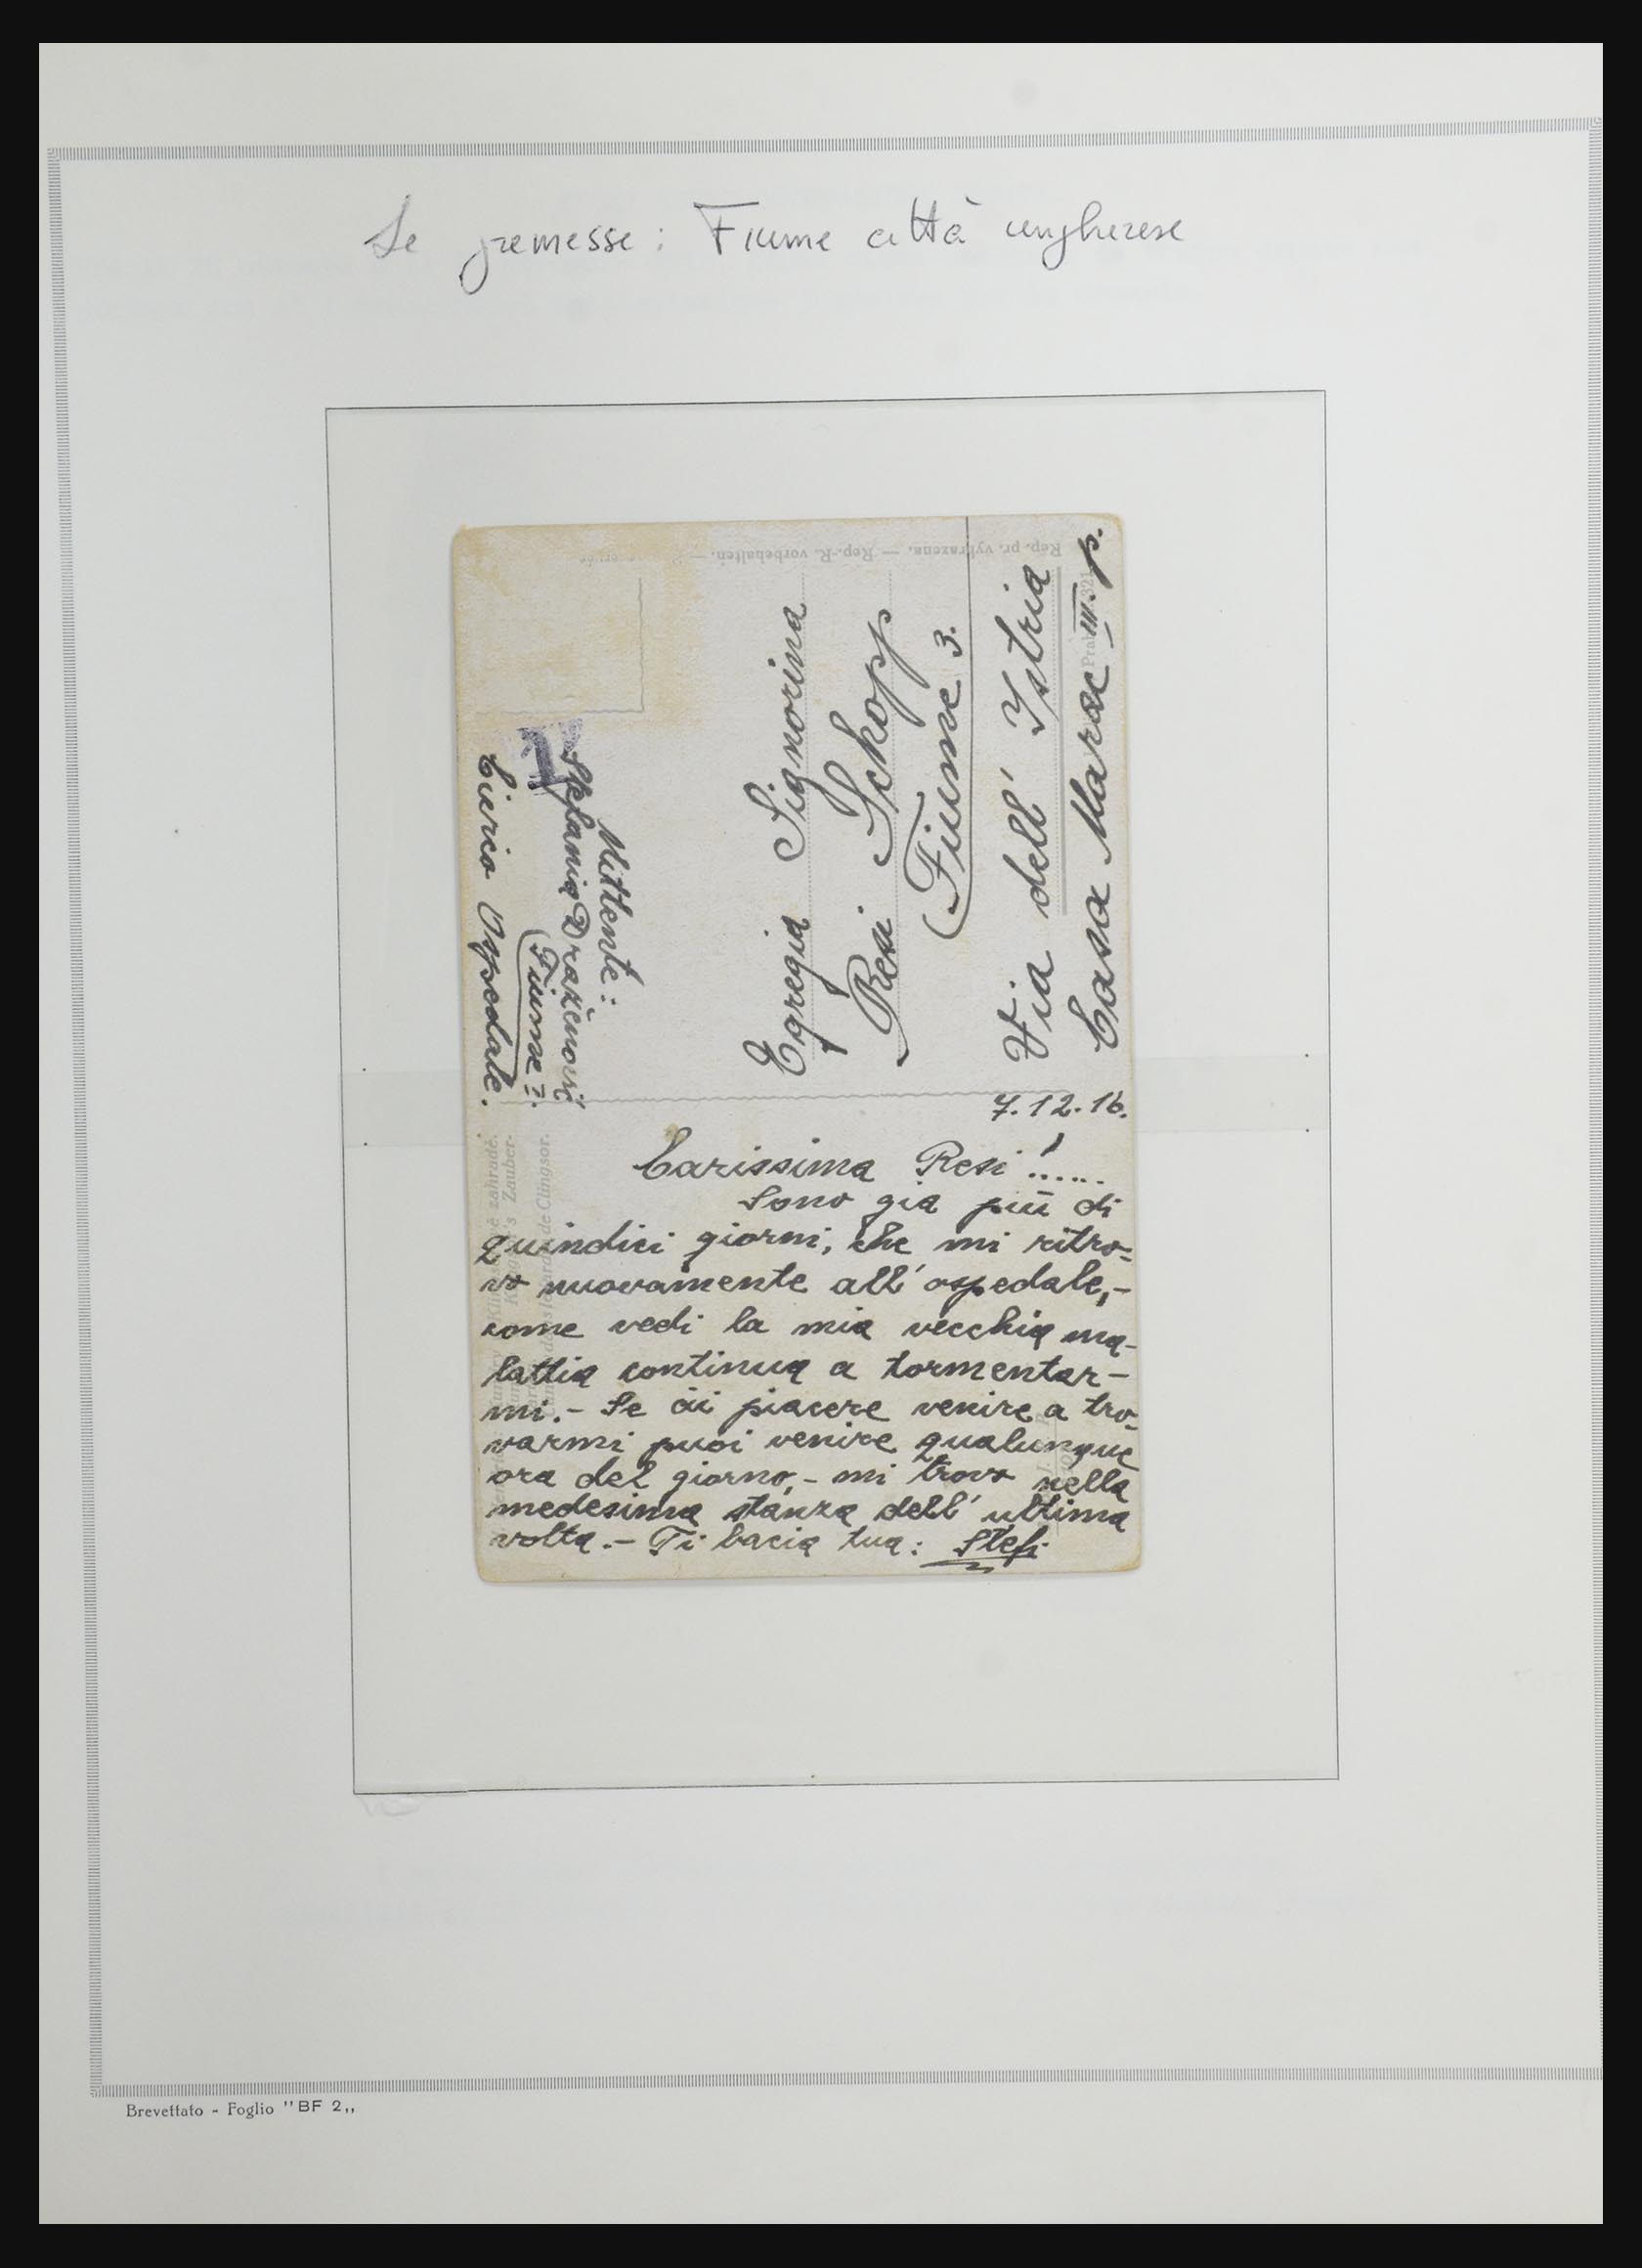 Le premesse: Fiume città ungherese
Rep. pr. vyhrazena. — Rep.-R. vorbehalten. —
Mittente:
Stefania Draženović
Fiume
Civico Ospedale.
Egregia Signorina
Resi Schopp
Fiume 3.
Via dell' Istria
Casa Marac III. p.
7.12.16.
Carissima Resi!.....
Sono gia più di
quindici giorni, che mi ritro=
vo nuovamente all' ospedale,-
come vedi la mia vecchia ma-
lattia continua a tormentar-
mi.- Se ài piacere venire a tro-
varmi puoi venire qualunque
ora del giorno,- mi trovo nella
medesima stanza dell' ultima
volta.- Ti bacia tua: Stefi
zahradě.
Zauber-
de Clingsor.
Brevettato - Foglio "BF 2„